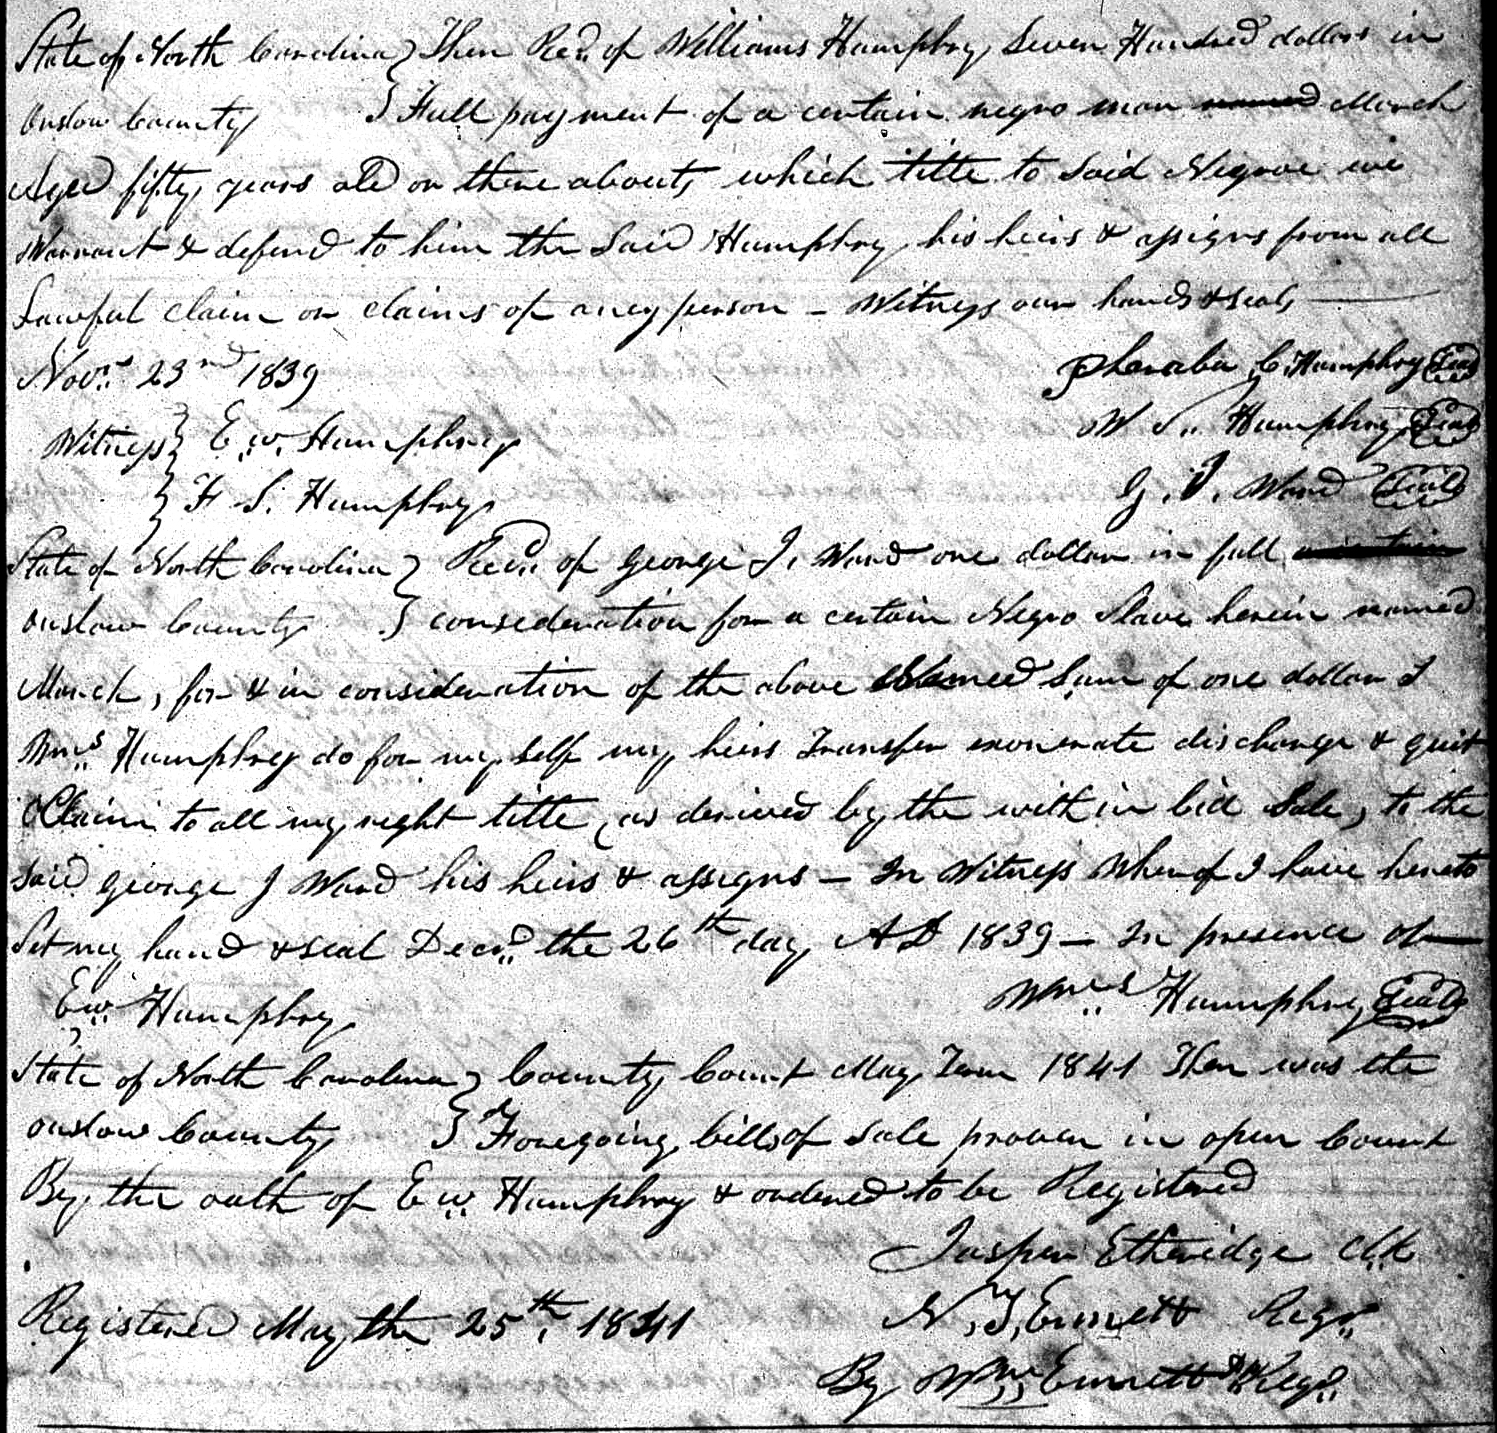 State of North Carolina } Then Recd. of Williams Humphry Seven Hundred dollars in
Onslow County } Full payment of a certain negro man named March
Aged fifty years old or there abouts which title to Said Negroe we
Warrant & defend to him the Said Humphry his heirs & assigns from all
Lawful claim or claims of any person – Witness our hands & seals
Novr. 23rd 1839 Pheraba C. Humphry Seal
Witness } E. W. Humphrey W S. Humphry Seal
} F. S. Humphry G. J. Ward Seal
State of North Carolina } Recd. of George J. Ward one dollar in full
Onslow County } consideration for a certain Negro Slave herein named
March, for & in consideration of the above named Sum of one dollar I
Wms. Humphrey do for my self my heirs Transfer exonerate discharge & quit
Claim to all my right title, as derived by the with in bid Sale, to the
Said George J Ward his heirs & assigns – In Witness Wherof I have hereto
Set my hand & seal Decr. the 26th day AD 1839 – In presence of
E W. Humphry Wms. Humphrey Seal
State of North Carolina } County Court May Term 1841 Then was the
Onslow County } Foregoing bills of Sale proven in open Court
By the oath of E W. Humphrey & ordered to be Registered
Jasper Etheridge Clk
Registered May the 25th, 1841 N. Y. Ennett Regr.
By Wm. Ennett D Regr.